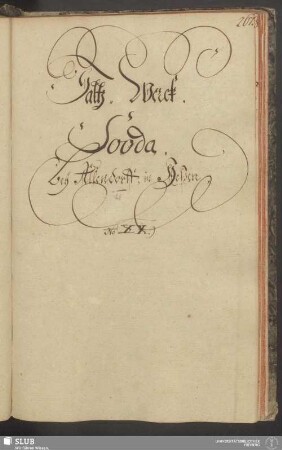 267.
Saltz. Werck.
Sooda.
beÿ Allendorff. in Heßen
No XX.)
SLUB
Wir führen Wissen.
UNIVERSITÄTSBIBLIOTHEK
FREIBERG